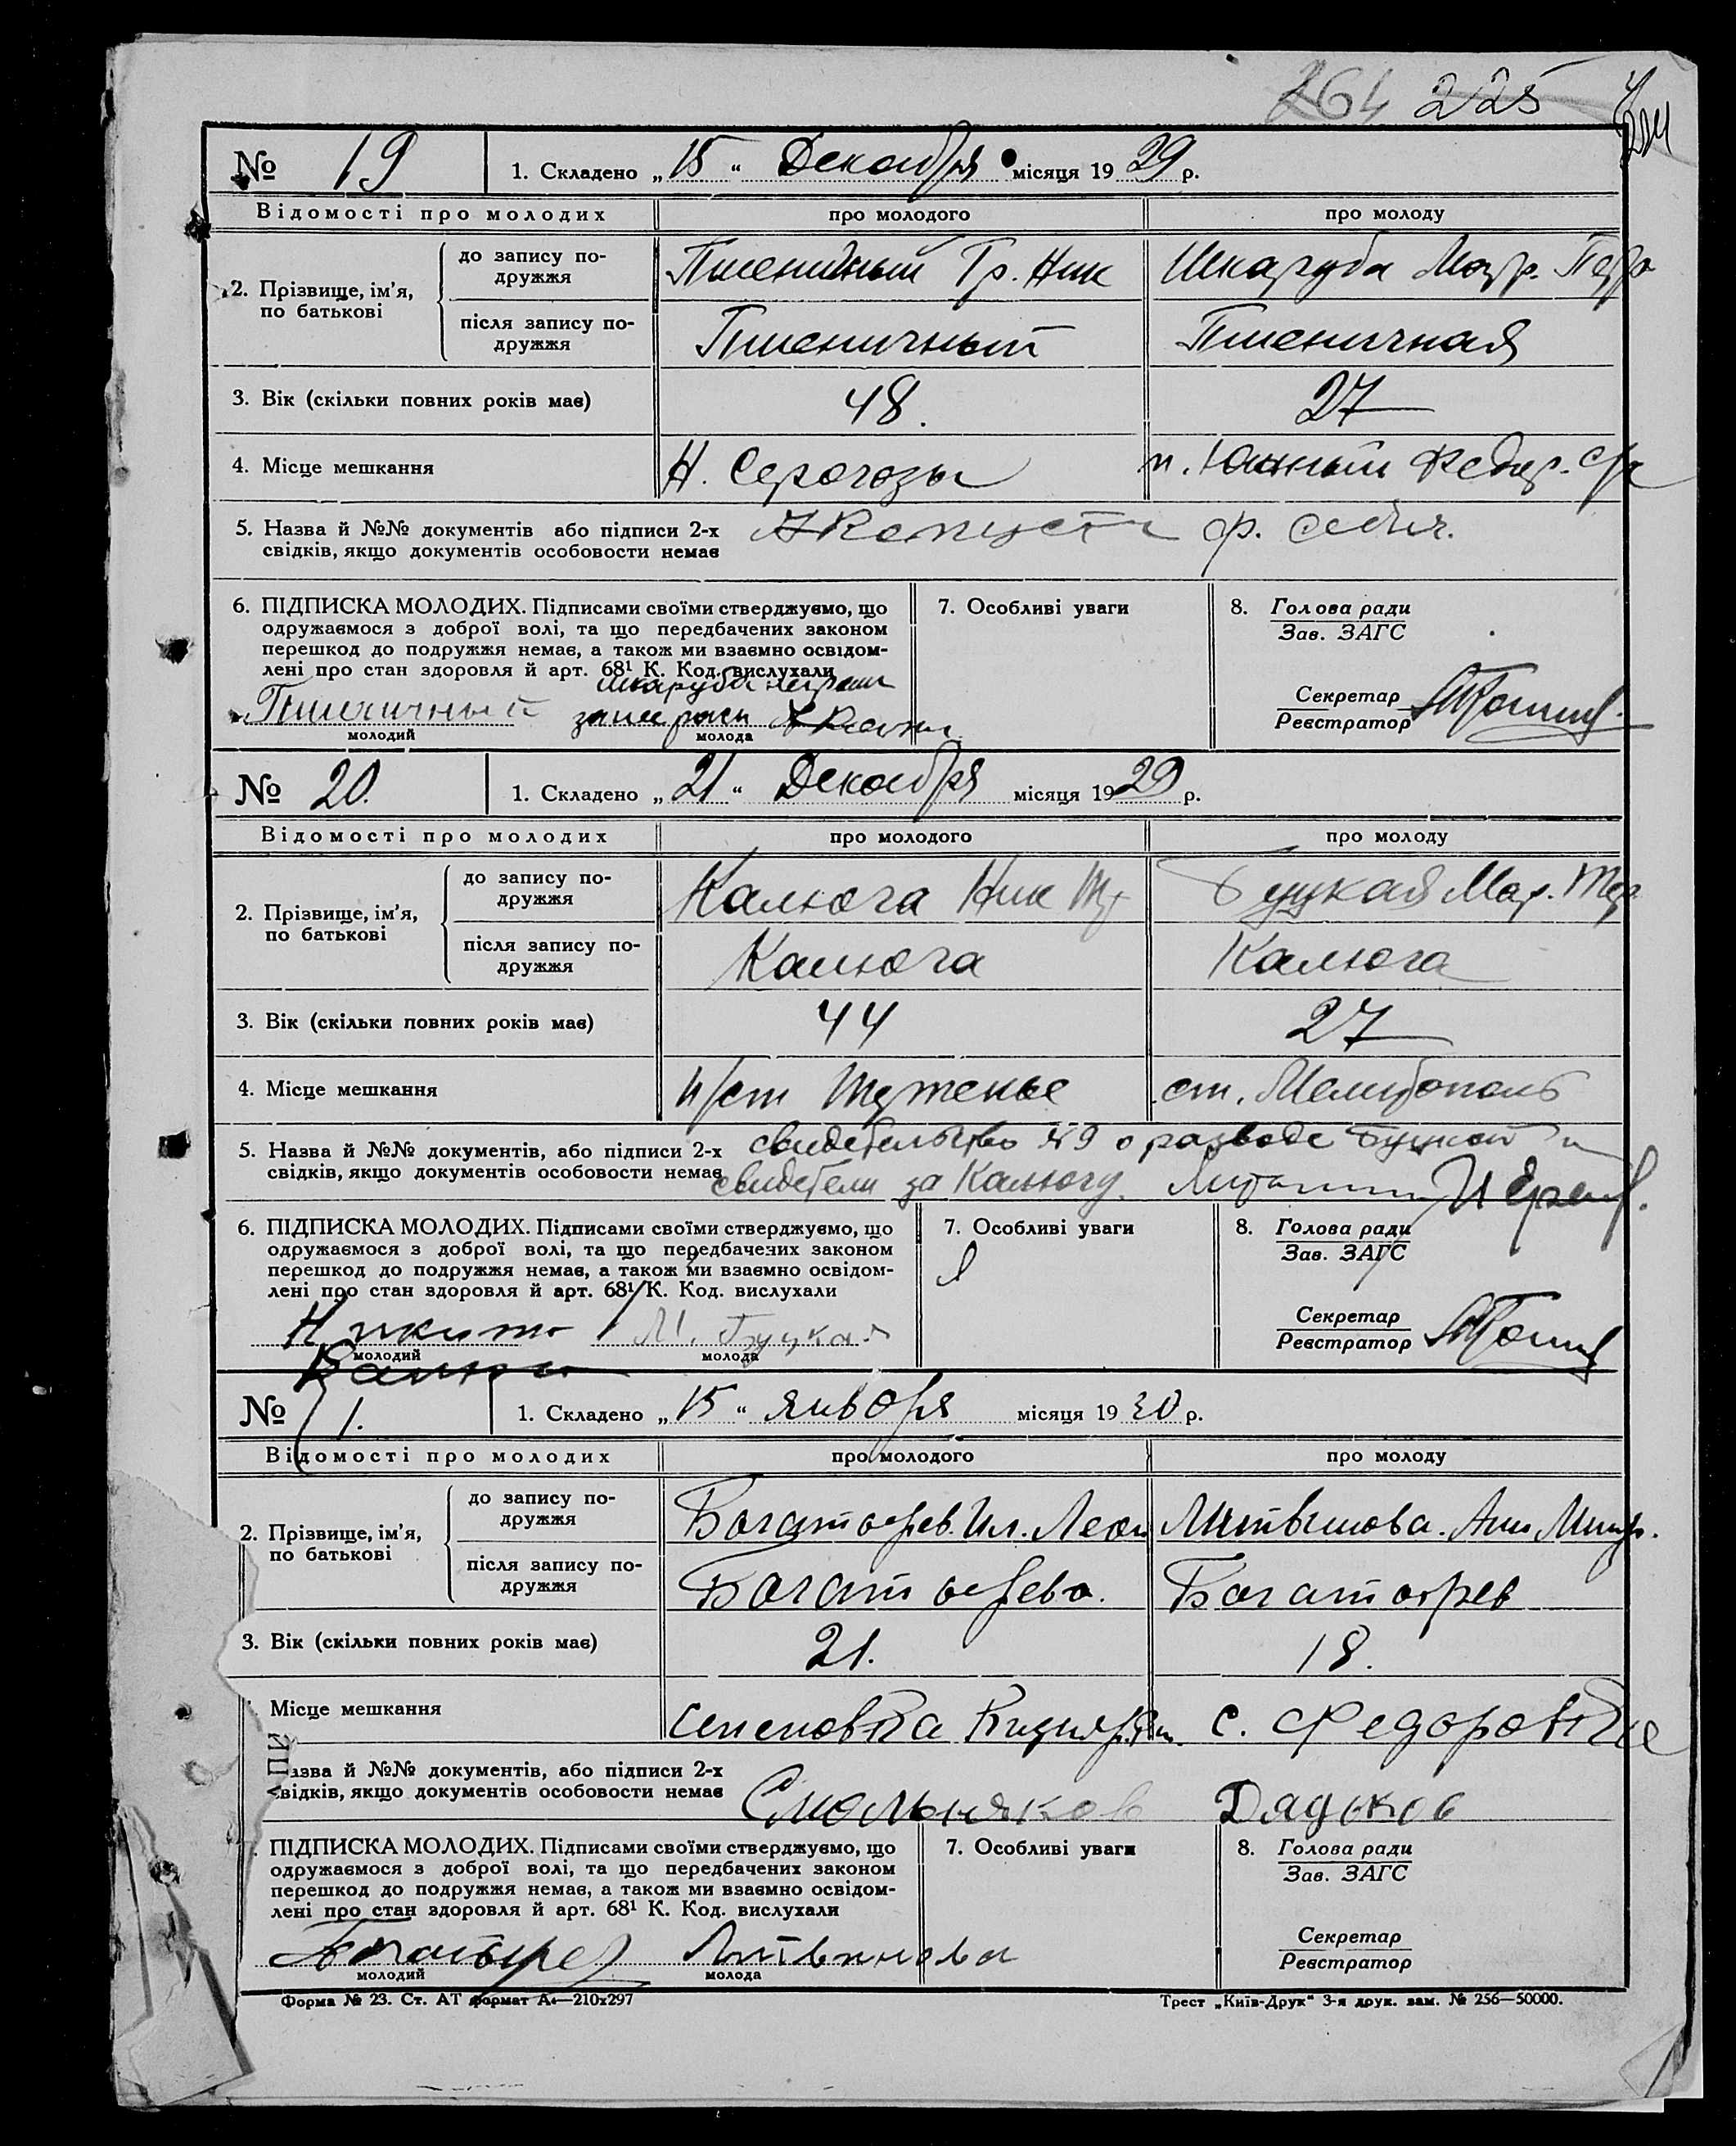 264 225
№ 19 1. Складено „15“ Декабря місяця 1929 р.
Відомості про молодих про молодого про молоду
2. Прізвище, ім'я, по батькові
до запису по-
дружжя
Пшеничный Гр. Ник Шкаруба Мар. Петр
після запису по-
дружжя
Пшеничный Пшеничная
3. Вік (скільки повних років має) 48. 27
4. Місце мешкання Н. Серогозы п. Южный Федор. с/с
5. Назва й №№ документів або підписи 2-х
свідків, якщо документів особовости немає
6. ПІДПИСКА МОЛОДИХ. Підписами своїми стверджуємо, що
одружаємося з доброї волі, та що передбачених законом
перешкод до подружжя немає, а також ми взаємно освідом-
лені про стан здоровля й арт. 68¹ К. Код. вислухали
Шкаруба неграм
Пшеничный за нее
молодий молода
7. Особливі уваги
8. Голова ради
Зав. ЗАГС
Секретар
Реєстратор
№ 20. 1. Складено „21“ Декабря місяця 1929 р.
Відомості про молодих про молодого про молоду
2. Прізвище, ім'я,
по батькові
до запису по-
дружжя
Калюга Ник Буцкая Мар.
після запису по-
дружжя
Калюга Калюга
3. Вік (скільки повних років має) 44 27
4. Місце мешкання ст. Мелитополь
5. Назва й №№ документів, або підписи 2-х
свідків, якщо документів особовости немає
свидетельство №9 о разводе Буцкой и
свидетели за Калюгу
6. ПІДПИСКА МОЛОДИХ. Підписами своїми стверджуємо, що
одружаємося з доброї волі, та що передбачених законом
перешкод до подружжя немає, а також ми взаємно освідом-
лені про стан здоровля й арт. 68¹ К. Код. вислухали
Никита М. Буцкая
молодий молода
Калюга
7. Особливі уваги
8. Голова ради
Зав. ЗАГС
Секретар
Реєстратор
№ 1. 1. Складено „15“ января місяця 1930 р.
Відомості про молодих про молодого про молоду
2. Прізвище, ім'я,
по батькові
до запису по-
дружжя
Богатырев. Ил. Леон Литвинова. Анн
після запису по-
дружжя
Богатырева. Богатырев
3. Вік (скільки повних років має) 21. 18.
Місце мешкання Семеновка с. Федоровка
азва й №№ документів, або підписи 2-х
свідків, якщо документів особовости немає
Смольняков Дядьков
ПІДПИСКА МОЛОДИХ. Підписами своїми стверджуємо, що
одружаємося з доброї волі, та що передбачених законом
перешкод до подружжя немає, а також ми взаємно освідом-
лені про стан здоровля й арт. 68¹ К. Код. вислухали
Богатырев Литвинова
молодий молода
7. Особливі уваги
8. Голова ради
Зав. ЗАГС
Секретар
Реєстратор
Форма № 23. Ст. АТ формат А4—210х297 Трест „Київ-Друк“ 3-я друк. зам. № 256—50000.